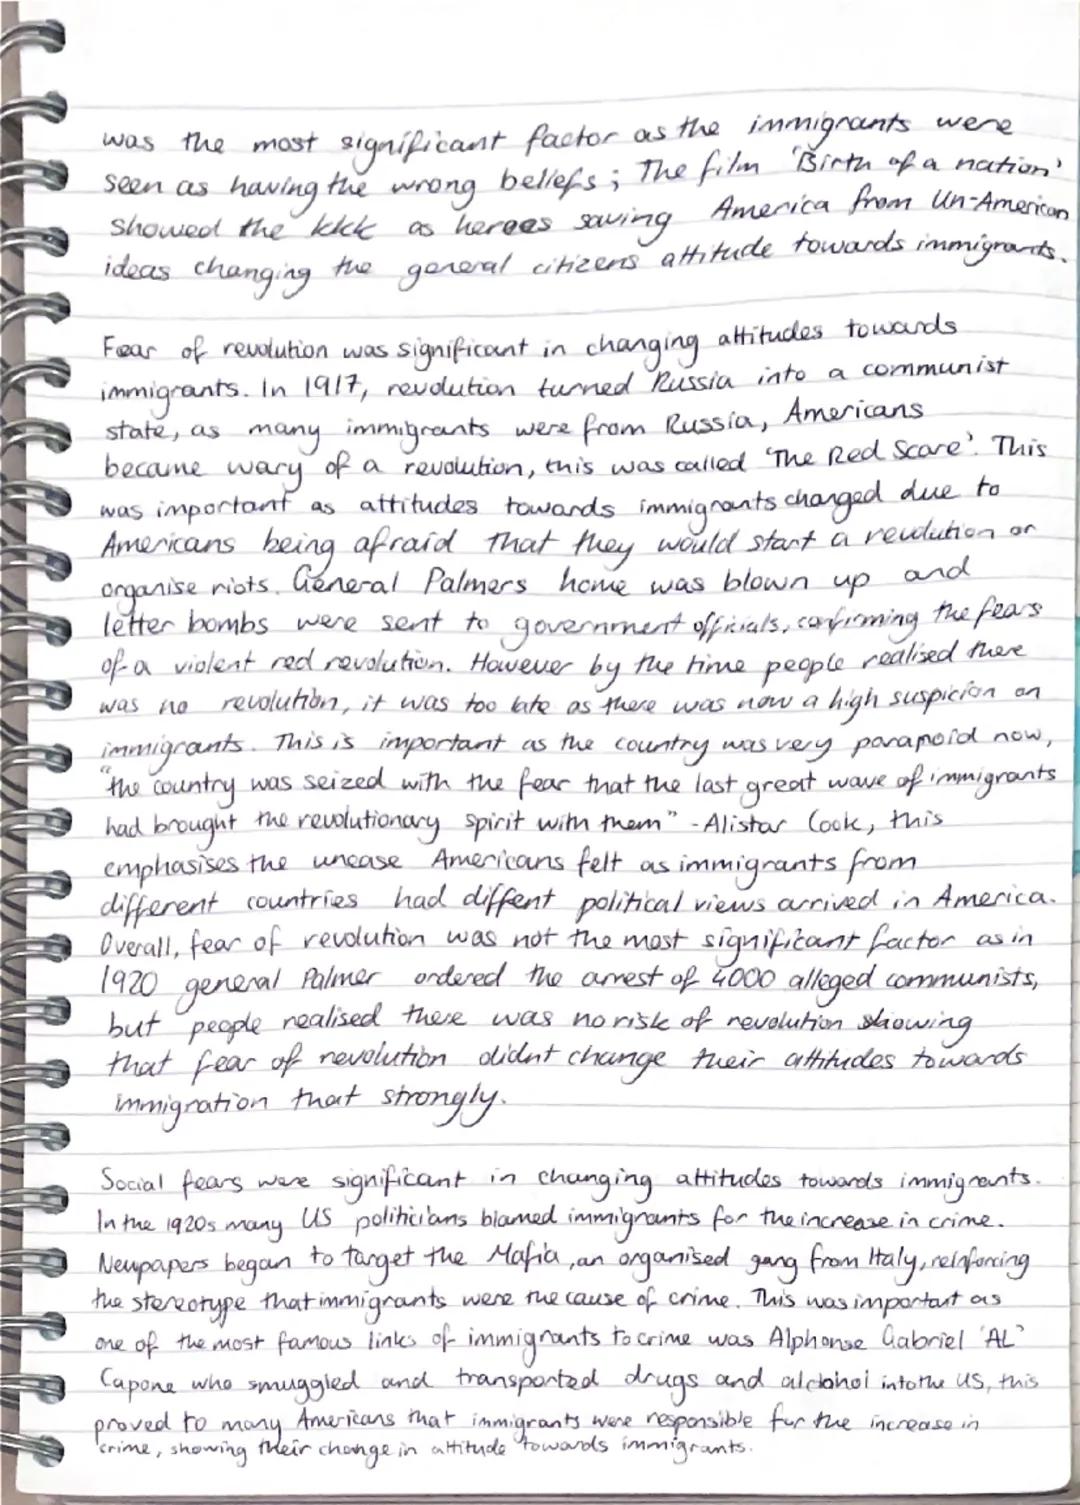 was the most significant factor as the immigrants were
seen as having the wrong beliefs; The film 'Birth of a nation'
showed the kkk as heroes saving America from Un-American
ideas changing the general citizens attitude towards immigrants.
Fear of revolution was significant in changing attitudes towards
immigrants. In 1917, revolution turned Russia into a communist
state, as many immigrants were from Russia, Americans
became wary of a revolution, this was called 'The Red Scare'. This
was important as attitudes towards immigrants changed due to
Americans being afraid that they would start a revolution or
organise riots. General Palmers home was blown up and
letter bombs were sent to government officials, confirming the fears
of a violent red revolution. However by the time people realised there
was no revolution, it was too late as there was now a high suspicion on
immigrants. This is important as the country was very paranoid now,
"the country was seized with the fear that the last great wave of immigrants
had brought the revolutionary spirit with them" - Alistar Cook, this
emphasises the unease Americans felt as immigrants from
different countries had diffent political views arrived in America.
Overall, fear of revolution was not the most significant factor as in
1920 general Palmer ordered the arrest of 4000 alleged communists,
but people realised there was no risk of revolution showing
that fear of revolution didnt change their attitudes towards
immigration that strongly.
Social fears were significant in changing attitudes towards immigrants.
In the 1920s many US politicians blamed immigrants for the increase in crime.
Newpapers began to target the Mafia, an organised gang from Italy, reinforcing
the stereotype that immigrants were the cause of crime. This was important as
one of the most famous links of immigrants to crime was Alphonse Gabriel 'AL'
Capone who smuggled and transported drugs and alcohol into the US, this
proved to many Americans that immigrants were responsible for the increase in
crime, showing their change in attitude towards immigrants.